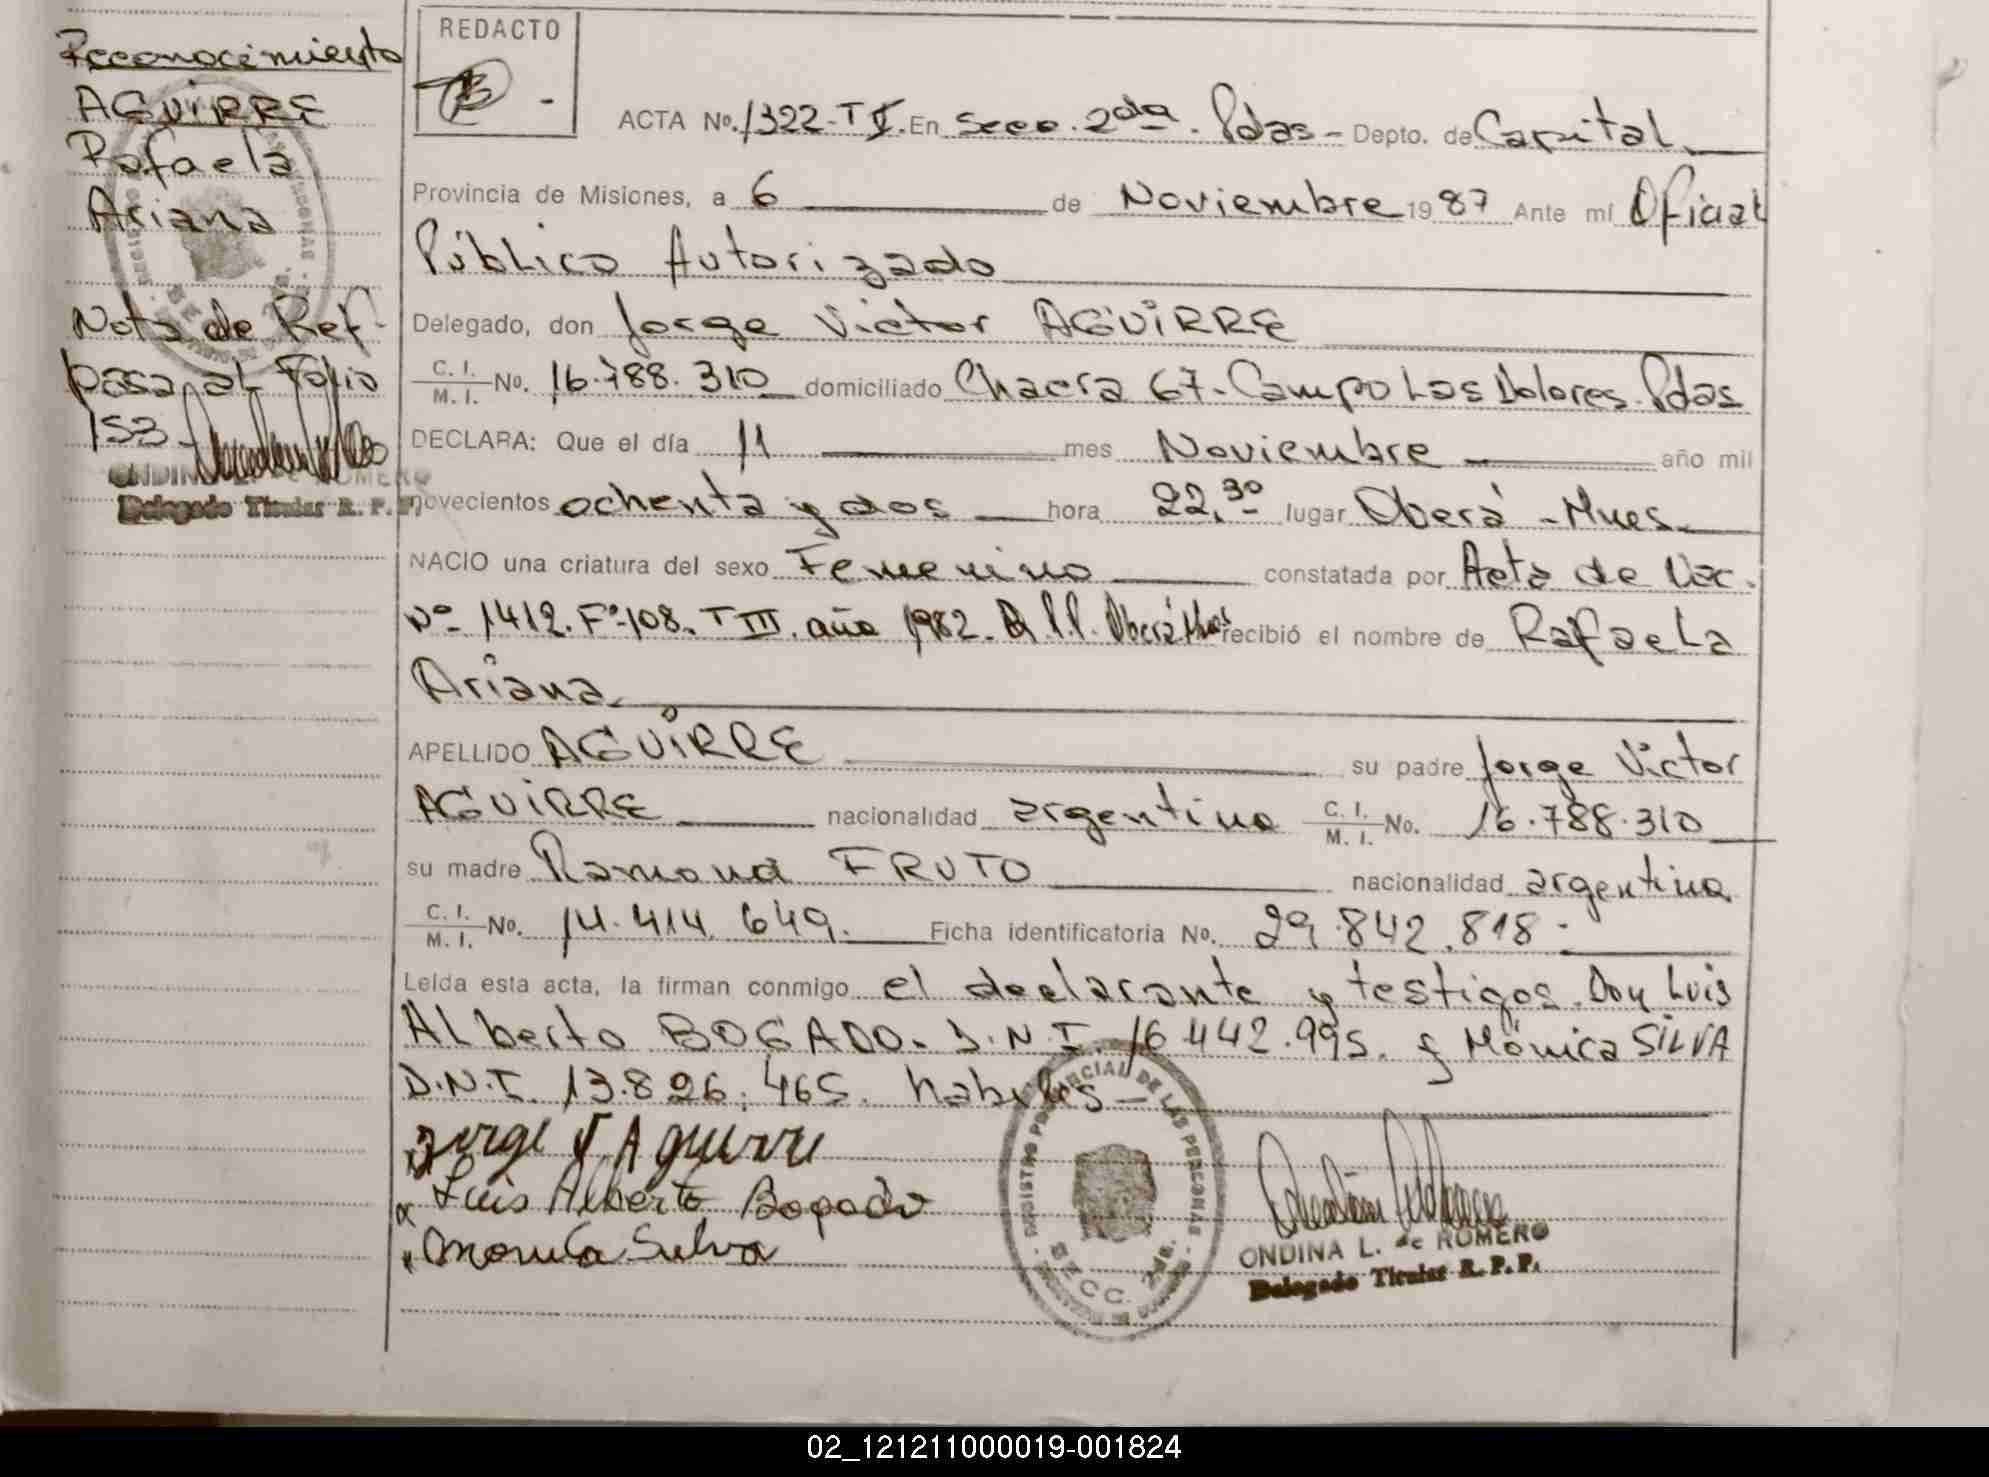 Reconocimiento
AGUIRRE
Rafaela
Ariana
Nota de Ref-
pasa al Folio
153
ONDINA L. de ROMERO
Delegado Titular R. P. P.
REDACTO
ACTA No. 1322-T V. En Secc. 2da. Pdas - Depto. de Capital
Provincia de Misiones, a 6 de Noviembre 1987 Ante mí Oficial
Público Autorizado
Delegado, don Jorge Victor AGUIRRE
C. I. / M. I. No. 16.788.310 domiciliado Chacra 67-Campo Las Dolores Pdas
DECLARA: Que el día 11 mes Noviembre año mil
novecientos ochenta y dos hora 22,30 lugar Oberá - Mnes
NACIO una criatura del sexo Femenino constatada por Acta de Nac.
Nº 1412. Fº 108. T III. año 1982. R.P.P. Oberá Mnes recibió el nombre de Rafaela
Ariana
APELLIDO AGUIRRE su padre Jorge Victor
AGUIRRE nacionalidad argentina C. I. / M. I. No. 16.788.310
su madre Ramona FRUTO nacionalidad argentina
C. I. / M. I. No. 14.414.649. Ficha identificatoria No. 29.842.818
Leída esta acta, la firman conmigo el declarante y testigos. Don Luis
Alberto BOGADO. D.N.I. 16.442.995. y Mónica SILVA
D.N.I. 13.826.465. habiles
Jorge V. Aguirre
Luis Alberto Bogado
Monica Silva
SECC. 2da.
ONDINA L. de ROMERO
Delegado Titular R. P. P.
02_121211000019-001824